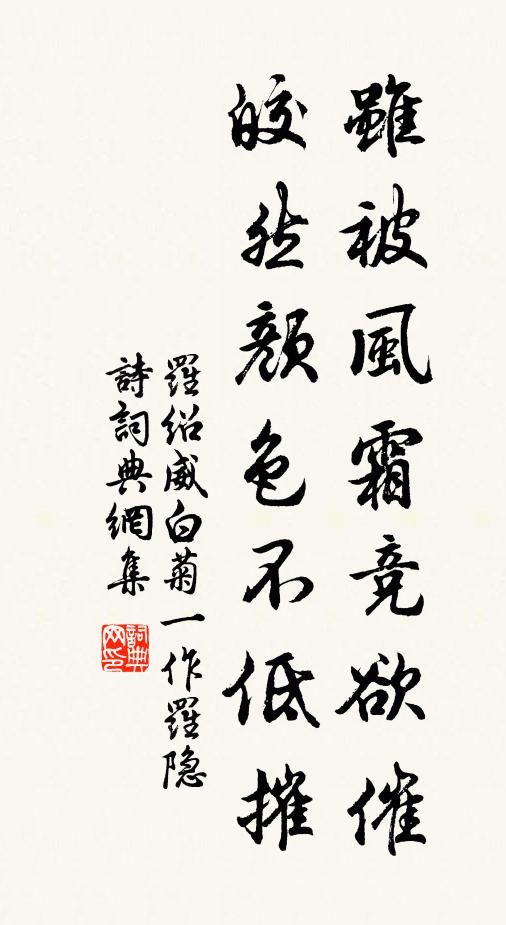 雖被風霜竞欲催
皎然顔色不低摧
羅紹威白菊一作羅隐
詩詞典網集
詞典
网印